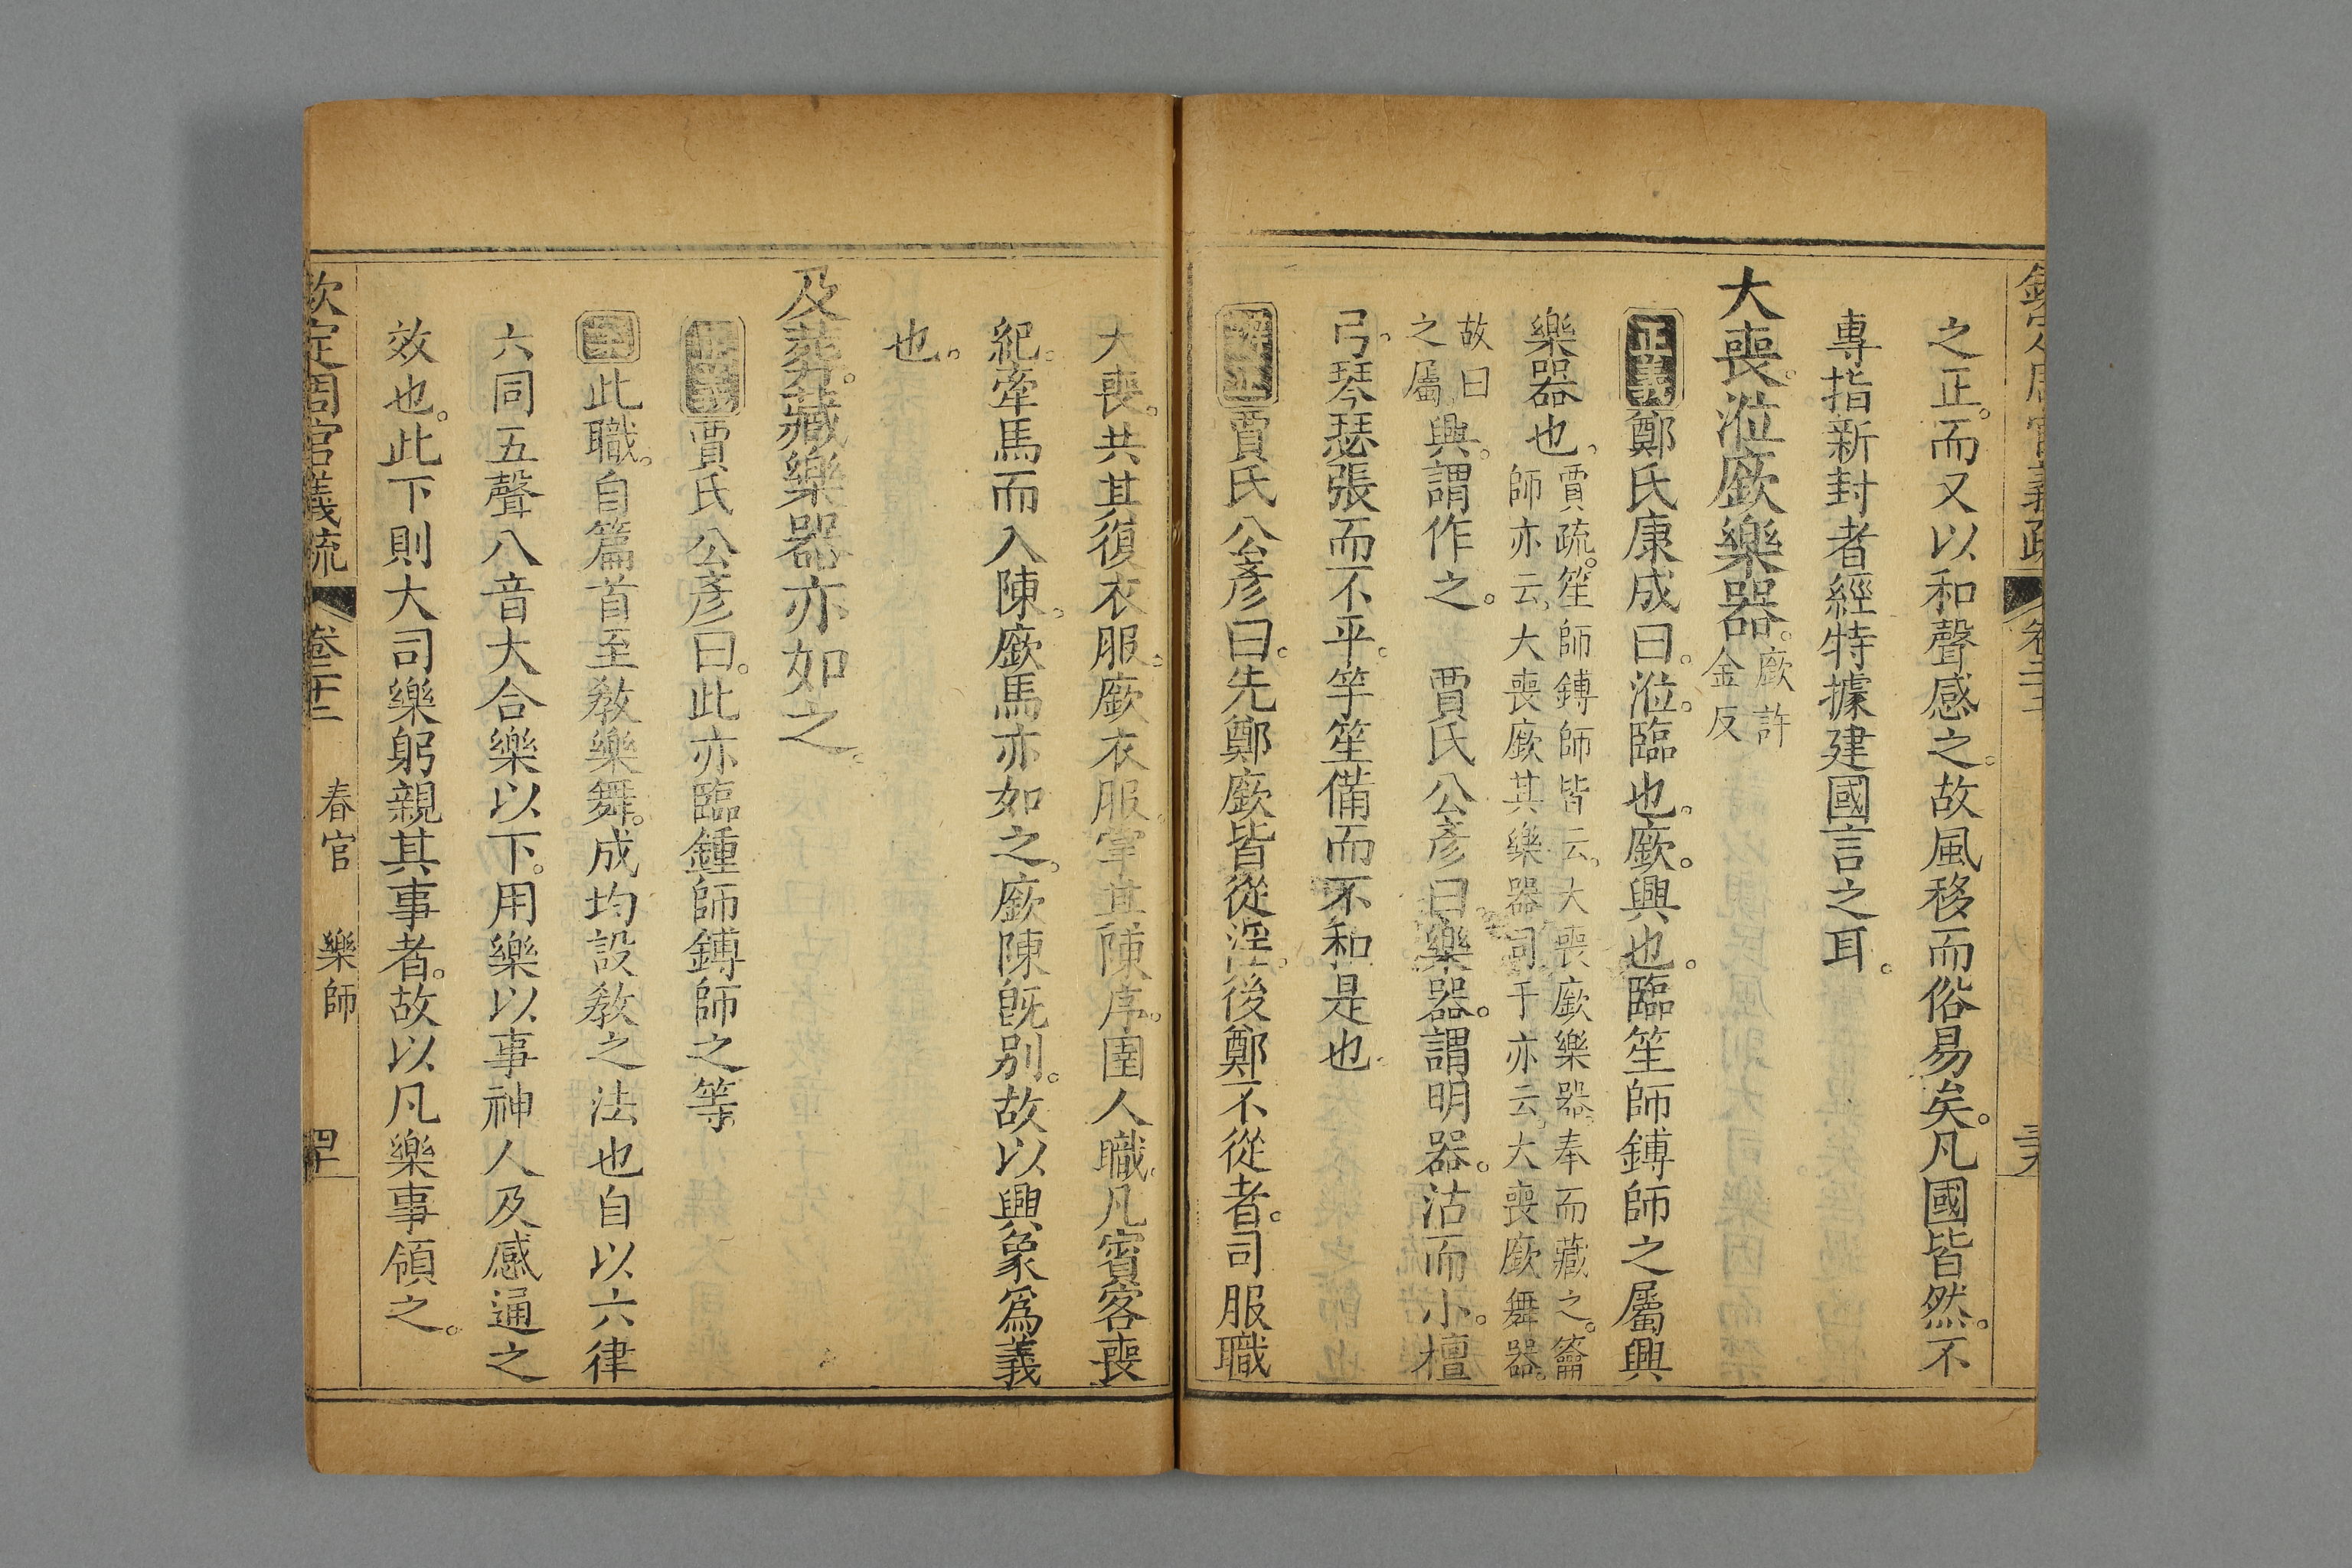 之正。而又以和聲感之。故風移而俗易矣。凡國皆然。不
專指新封者經特據建國言之耳。
大喪。涖廞樂器。廞許
金反
正義鄭氏康成曰。涖。臨也。廞。興也。臨笙師鎛師之屬興
樂器也。賈疏。笙師鎛師皆云。大喪廞樂器。奉而藏之。籥
師亦云。大喪廞其樂器。司干亦云。大喪廞舞器。
故曰
之屬。興。謂作之。 賈氏公彥曰樂器。謂明器。沽而小。檀
弓。琴瑟張而不平。竽笙備而不和是也。
辨正賈氏公彥曰。先鄭廞皆從淫。後鄭不從者。司服職
大喪。共其復衣服。廞衣服。掌其陳序。圉人職。凡賓客喪
紀。牽馬而入陳。廞馬亦如之。廞陳旣别。故以興象爲義
也。
及葬。藏樂器亦如之。
正義賈氏公彥曰。此亦臨鍾師鎛師之等。
此職。自篇首至敎樂舞。成均設敎之法也自以六律
六同五聲八音大合樂以下。用樂以事神人及感通之
效也。此下則大司樂躬親其事者。故以凡樂事領之。
欽定周官義疏 卷二十二 春官 樂師 四十